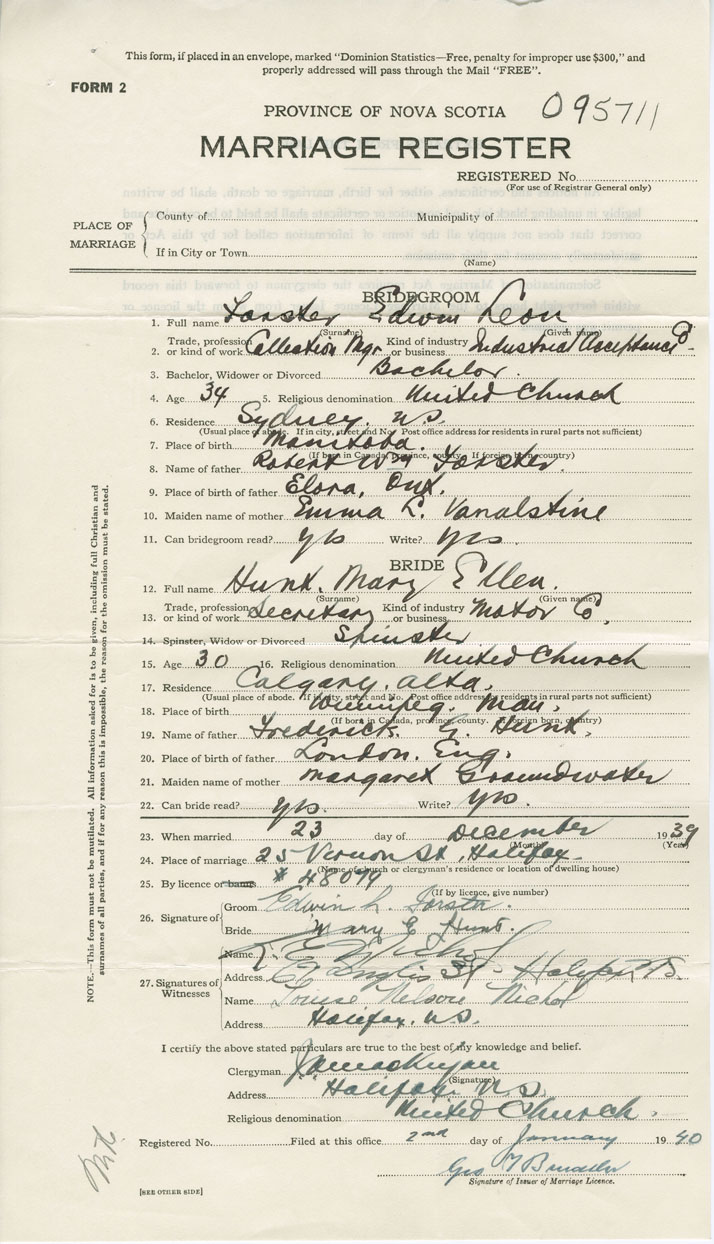 This form, if placed in an envelope, marked "Dominion Statistics—Free, penalty for improper use $300," and
properly addressed will pass through the Mail "FREE".
FORM 2
PROVINCE OF NOVA SCOTIA 095711
MARRIAGE REGISTER
REGISTERED No.
(For use of Registrar General only)
PLACE OF MARRIAGE
County of Municipality of
If in City or Town
(Name)
BRIDEGROOM
1. Full name Forster Edwin Leon
(Surname) (Given name)
2. Trade, profession or kind of work Collection Mgr. Kind of industry or business Industrial Acceptance Co.
3. Bachelor, Widower or Divorced Bachelor.
4. Age 34 5. Religious denomination United Church
6. Residence Sydney. N.S.
(Usual place of abode. If in city, street and No. Post office address for residents in rural parts not sufficient)
7. Place of birth Manitoba.
(If born in Canada, province, county. If foreign born, country)
8. Name of father Robert Wm Forster.
9. Place of birth of father Elora, Ont.
10. Maiden name of mother Emma L. Vanalstine
11. Can bridegroom read? yes Write? yes.
BRIDE
12. Full name Hunt. Mary Ellen.
(Surname) (Given name)
13. Trade, profession or kind of work Secretary Kind of industry or business Motor Co.
14. Spinster, Widow or Divorced Spinster
15. Age 30 16. Religious denomination United Church
17. Residence Calgary. Alta.
(Usual place of abode. If in city, street and No. Post office address for residents in rural parts not sufficient)
18. Place of birth Winnipeg. Man.
(If born in Canada, province, county. If foreign born, country)
19. Name of father Frederick. G. Hunt.
20. Place of birth of father London. Eng.
21. Maiden name of mother Margaret Groundwater
22. Can bride read? yes. Write? yes.
23. When married 23 day of December 1939
(Month) (Year)
24. Place of marriage 25 Vernon St, Halifax.
(Name of church or clergyman's residence or location of dwelling house)
25. By licence or banns # 48079
(If by licence, give number)
26. Signature of
Groom Edwin L. Forster.
Bride Mary E Hunt.
27. Signatures of Witnesses
Name Nichol
Address Inglis St. Halifax N.S.
Name Louise Nelson Nichol
Address Halifax. N.S.
I certify the above stated particulars are true to the best of my knowledge and belief.
Clergyman
(Signature)
Address Halifax N.S.
Religious denomination United Church.
Registered No. Filed at this office 2nd day of January 1940
Geo
Signature of Issuer of Marriage Licence.
[SEE OTHER SIDE]
NOTE.—This form must not be mutilated. All information asked for is to be given, including full Christian and
surnames of all parties, and if for any reason this is impossible, the reason for the omission must be stated.